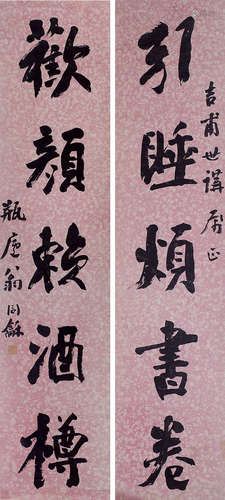 吉甫世講屬正
引睡煩書卷
歡顏賴酒樽
瓶廬翁同龢